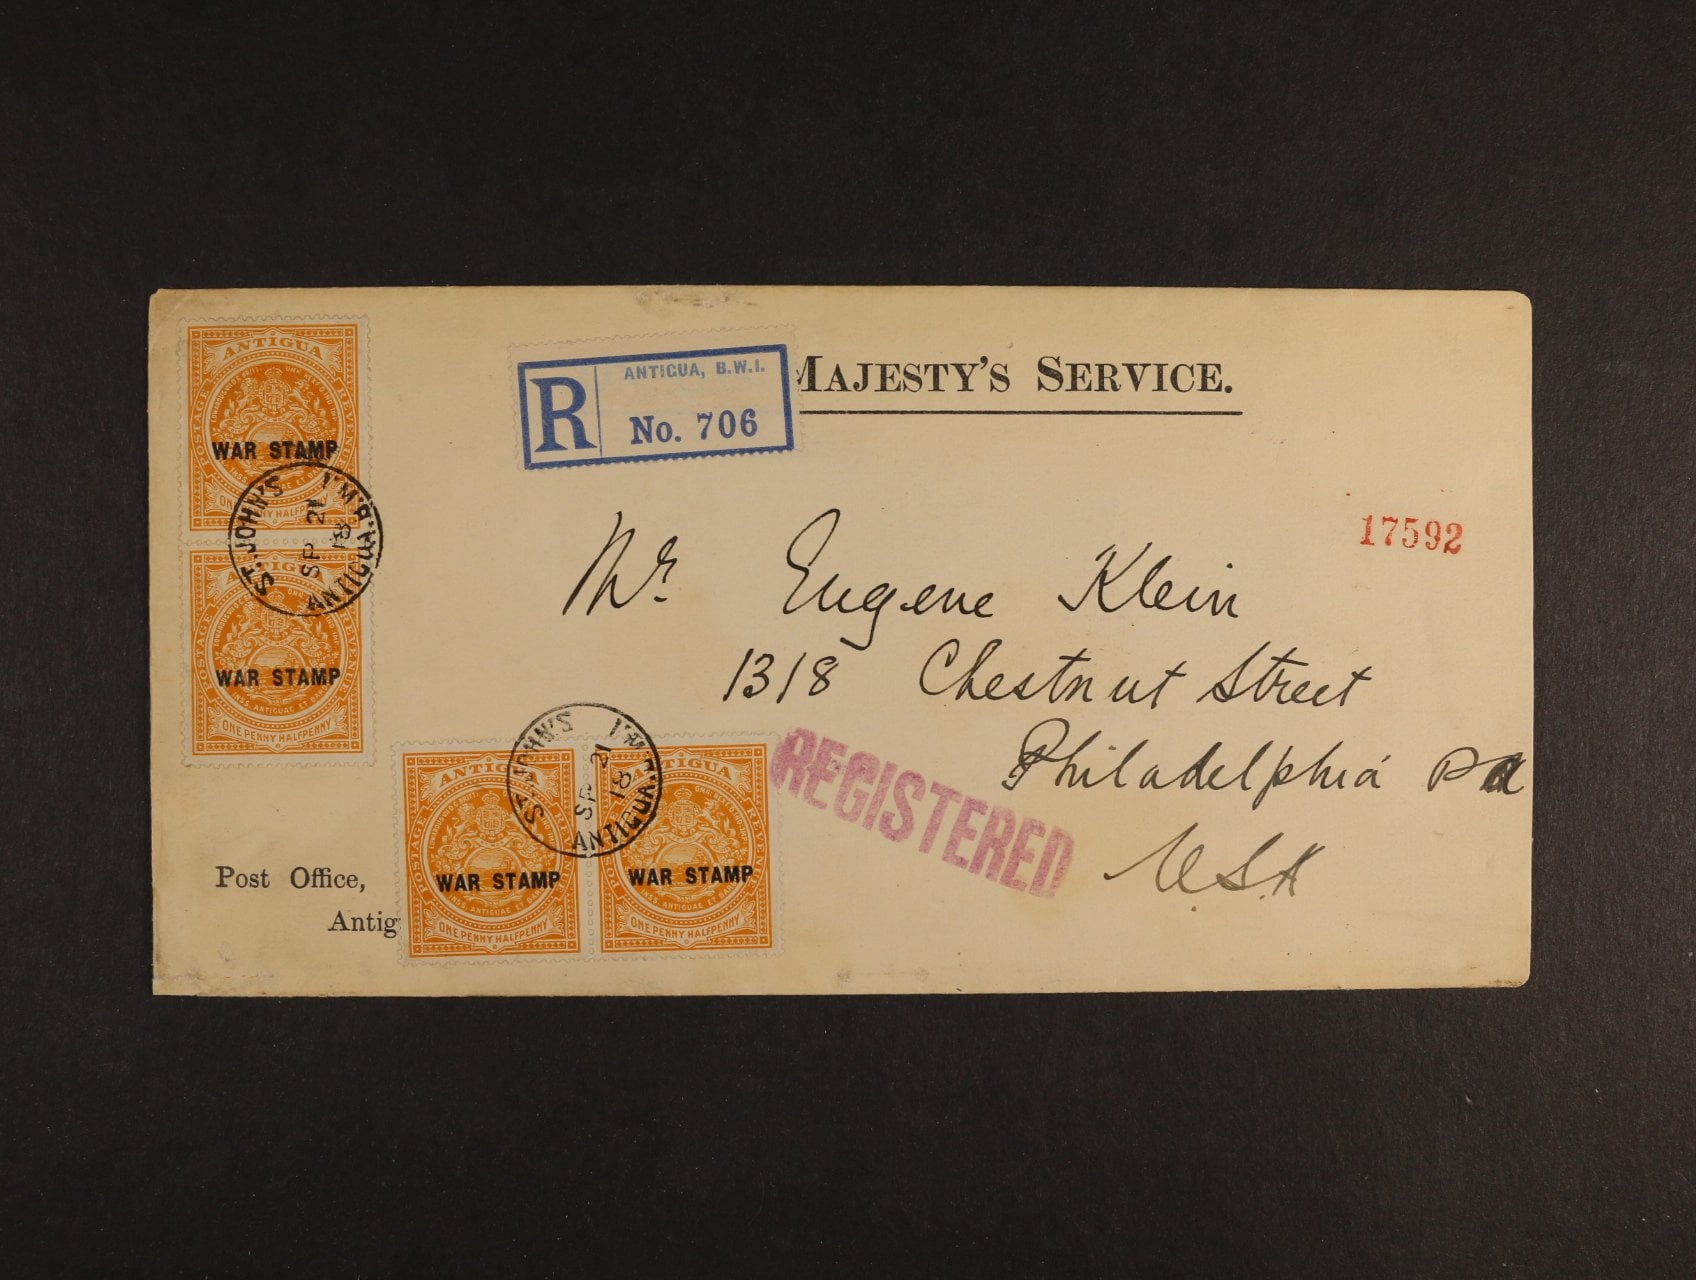 ANTIGUA
POSTAGE
REVENUE
WAR STAMP
ONE PENNY HALFPENNY
ST. JOHN'S
SP 21
18
ANTIGUA
POSTAGE
WAR STAMP
ONE PENNY HALFPENNY
R
ANTIGUA, B.W.I.
No. 706
MAJESTY'S SERVICE.
17592
Mr. Eugene Klein
1318 Chestnut Street
Philadelphia Pa
U.S.A
REGISTERED
Post Office,
Antig
ANTIGUA
POSTAGE
WAR STAMP
ONE PENNY HALFPENNY
ST. JOHN'S
SP 21
18
ANTIGUA
ANTIGUA
REVENUE
WAR STAMP
ONE PENNY HALFPENNY